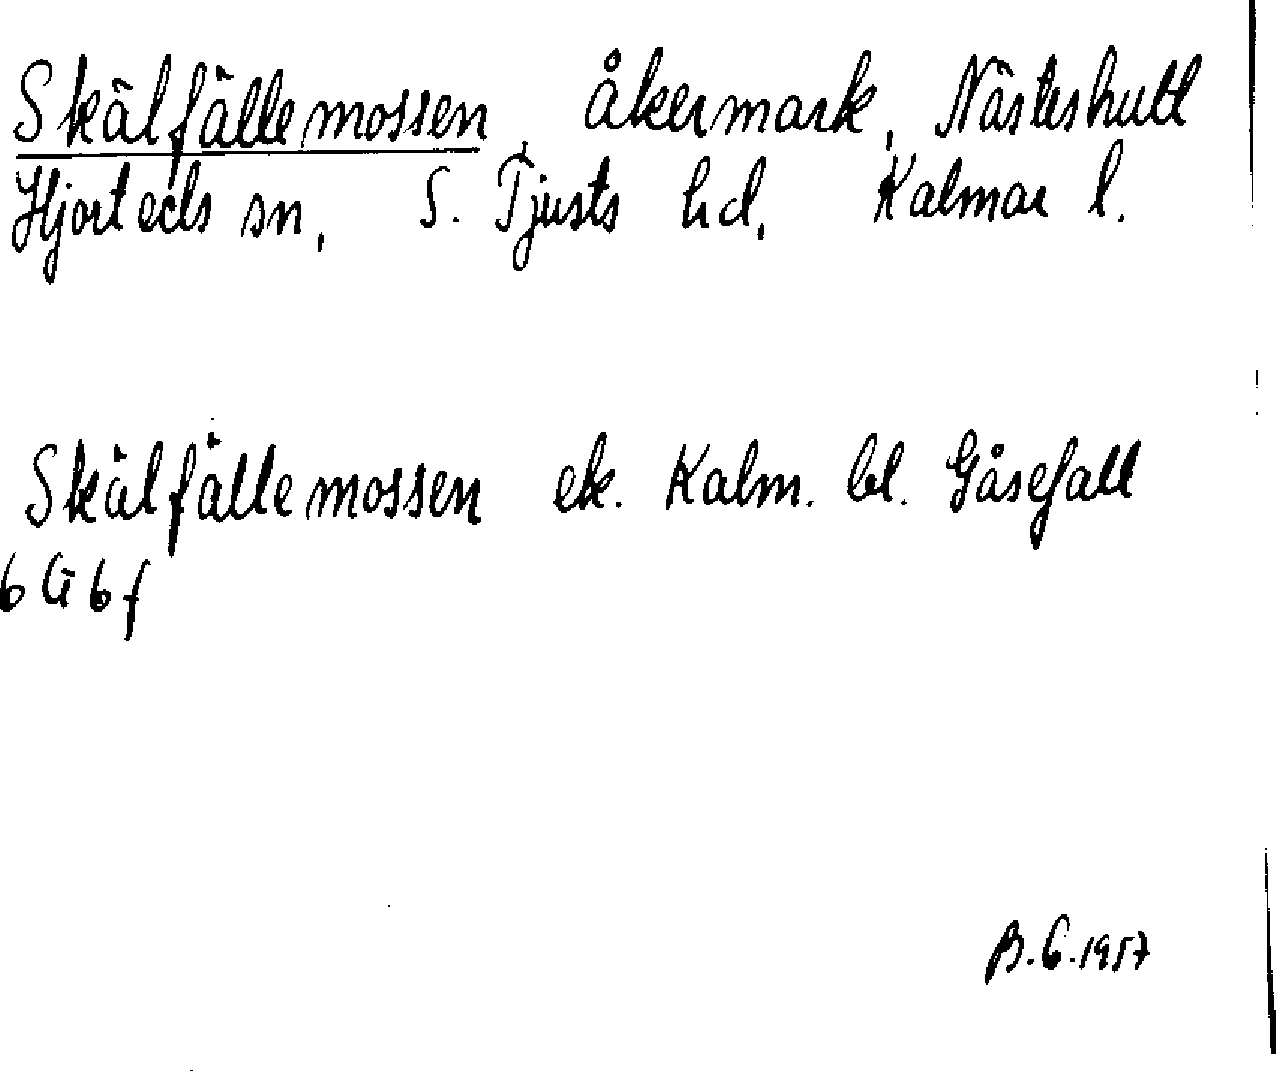 Skälfällemossen, åkermark, Nästeshult
Hjorteds sn, S. Tjusts hd, Kalmar l.
Skälfällemossen ek. Kalm. bl. Gåsefall
6 G 6 f
B.G.1957